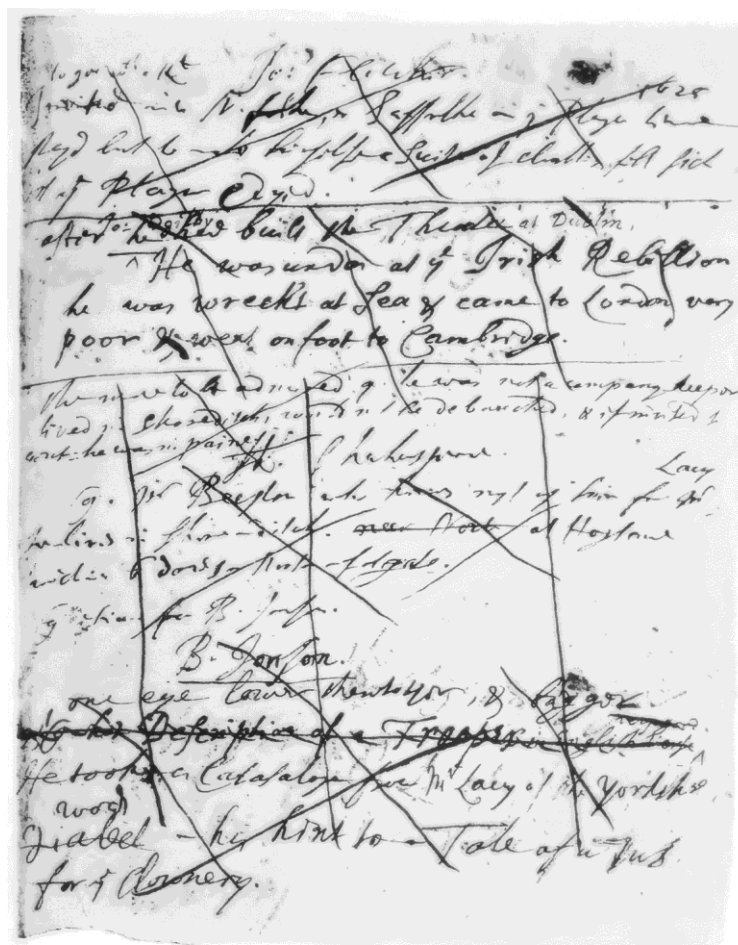 Jo: Fletcher.
1625
invited into Norfolke or Suffolke in yᵉ Plague time
stayd but to make himselfe a suite of cloathes fell sick
of yᵉ Plague & dyed.
after built the Theatre at Dublin,
He was undon at yᵉ Irish Rebellion
he was wreckt at Sea & came to London very
poor & went on foot to Cambridge.
the more to be admired q. he was not a company keeper
lived in Shoreditch, wouldn't be debauched, & if invited to
writ: he was in paine.
W. Shakespeare.
Lacy
q. Mʳ Beeston who knowes most of him fr Mʳ
he lives in Shore-ditch. at Hoglane
within 6 dores Norton-folgate.
q etiam for B. Jonson.
B. Jonson.
one eye lower then t'other, & bigger
Description of a Trooper
He tooke a Catalogue from Mʳ Lacy of the Yorkshire
word
his hint to a Tale of a Tub
for yᵉ clownery.